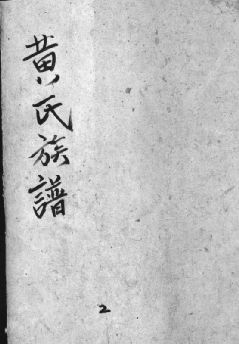 黄氏族譜
2